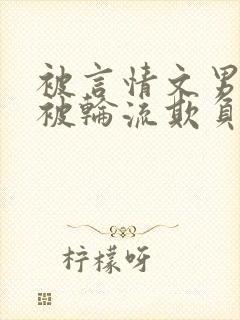 被言情文男
被轮流欺负
柠檬呀